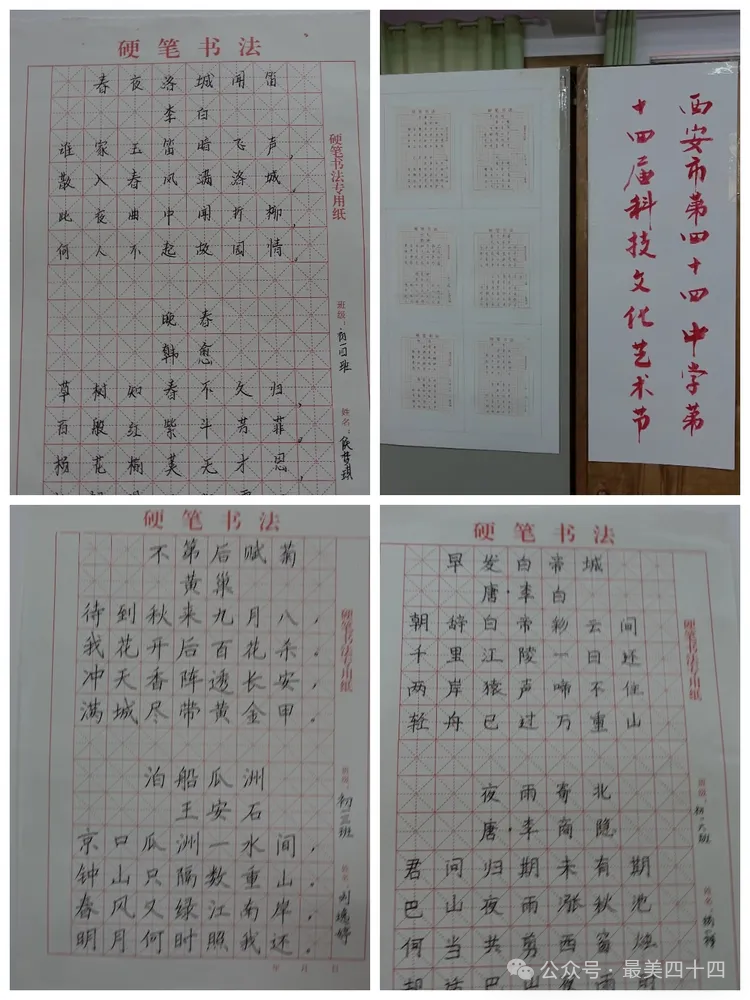 硬笔书法
春夜洛城闻笛
李白
谁家玉笛暗飞声,
散入春风满洛城。
此夜曲中闻折柳,
何人不起故园情。
晚春
韩愈
草树知春不久归,
百般红紫斗芳菲。
杨花榆荚无才思,
硬笔书法专用纸
班级:初一四班
姓名:
西安市第四十四中学第
十四届科技文化艺术节
硬笔书法
不第后赋菊
黄巢
待到秋来九月八,
我花开后百花杀。
冲天香阵透长安,
满城尽带黄金甲。
泊船瓜洲
王安石
京口瓜洲一水间,
钟山只隔数重山。
春风又绿江南岸,
明月何时照我还。
硬笔书法专用纸
班级:初一三班
姓名:
年 月 日
硬笔书法
早发白帝城
唐·李白
朝辞白帝彩云间
千里江陵一日还
两岸猿声啼不住
轻舟已过万重山
夜雨寄北
唐·李商隐
君问归期未有期
巴山夜雨涨秋池
何当共剪西窗烛
硬笔书法专用纸
班级:初一六班
姓名:
公众号·最美四十四